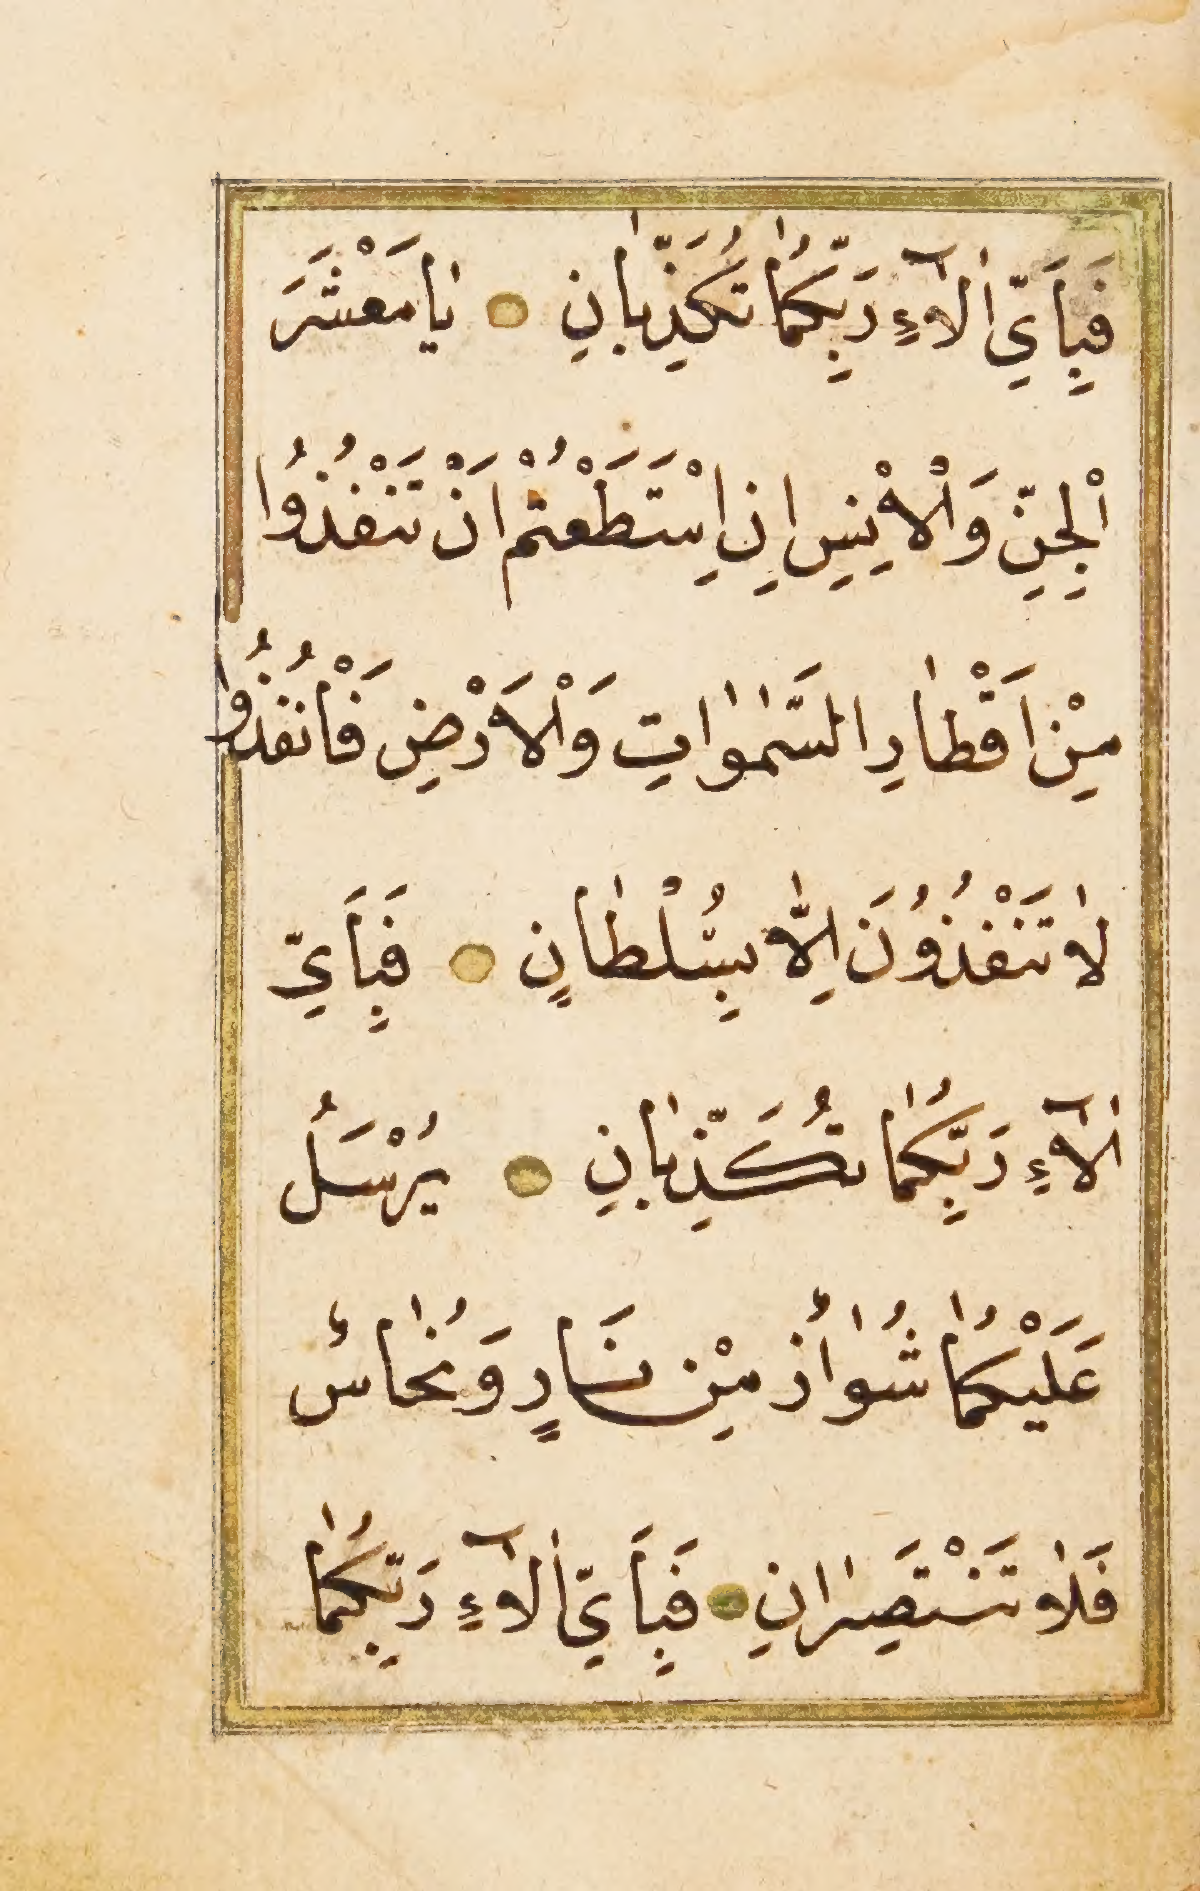 فَبِاَيِّ اٰلَآءِ رَبِّكُمٰا تُكَذِّبٰانِ ۝ يٰا مَعْشَرَ
اْلجِنِّ وَاْلاِنْسِ اِنِ اسْتَطَعْتُمْ اَنْ تَنْفُذُوا
مِنْ اَقْطٰارِ السَّمٰوٰاتِ وَاْلاَرْضِ فَانْفُذُوا
لٰا تَنْفُذُونَ اِلّٰا بِسُلْطٰانٍ ۝ فَبِاَيِّ
اٰلَآءِ رَبِّكُمٰا تُكَذِّبٰانِ ۝ يُرْسَلُ
عَلَيْكُمٰا شُوٰاذٌ مِنْ نَارٍ وَنُحٰاسٌ
فَلٰا تَنْتَصِرٰانِ ۝ فَبِاَيِّ اٰلَآءِ رَبِّكُمٰا